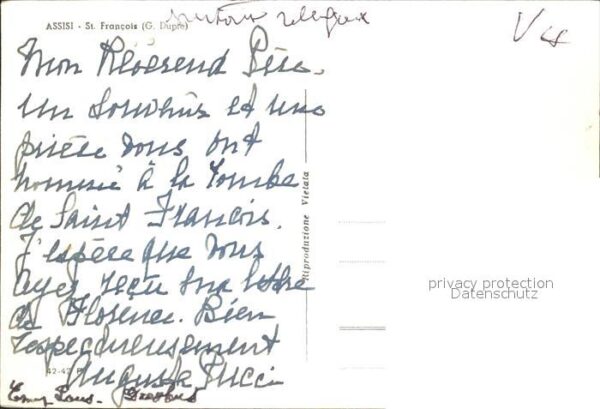 ASSISI - St. François (G. Duprè)
religeux
V
Mon Révérend Père.
un souvenir et une
prière vous ont
à la Tombe
de Saint Francois.
J'espère que vous
ayez reçu ma lettre
de Florence. Bien
respectueusement
Auguste Pucci
42-42
Riproduzione Vietata
privacy protection
Datenschutz